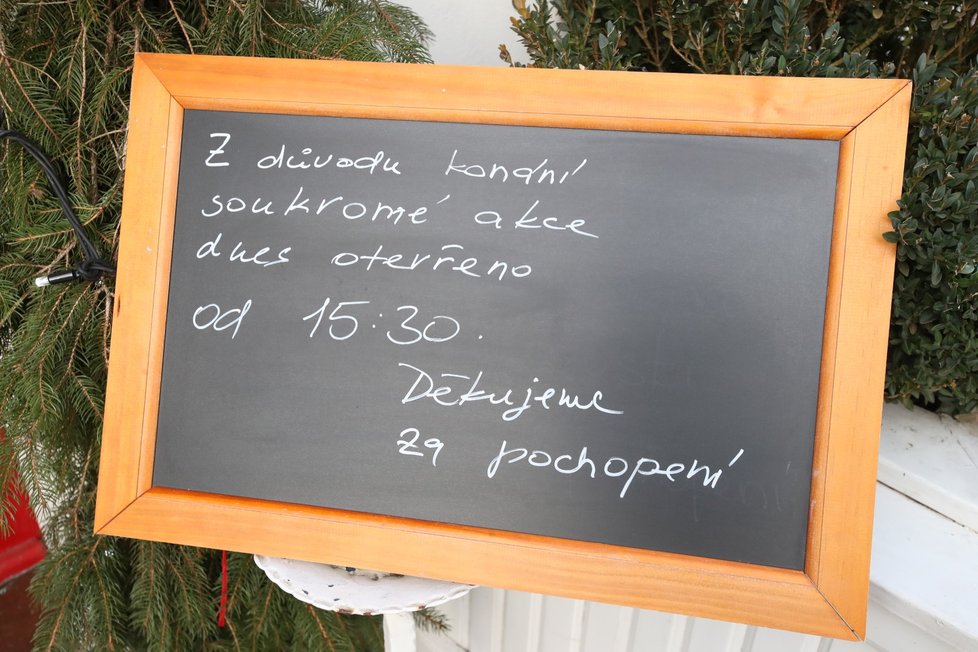 Z důvodu konání
soukromé akce
dnes otevřeno
od 15:30.
Děkujeme
za pochopení